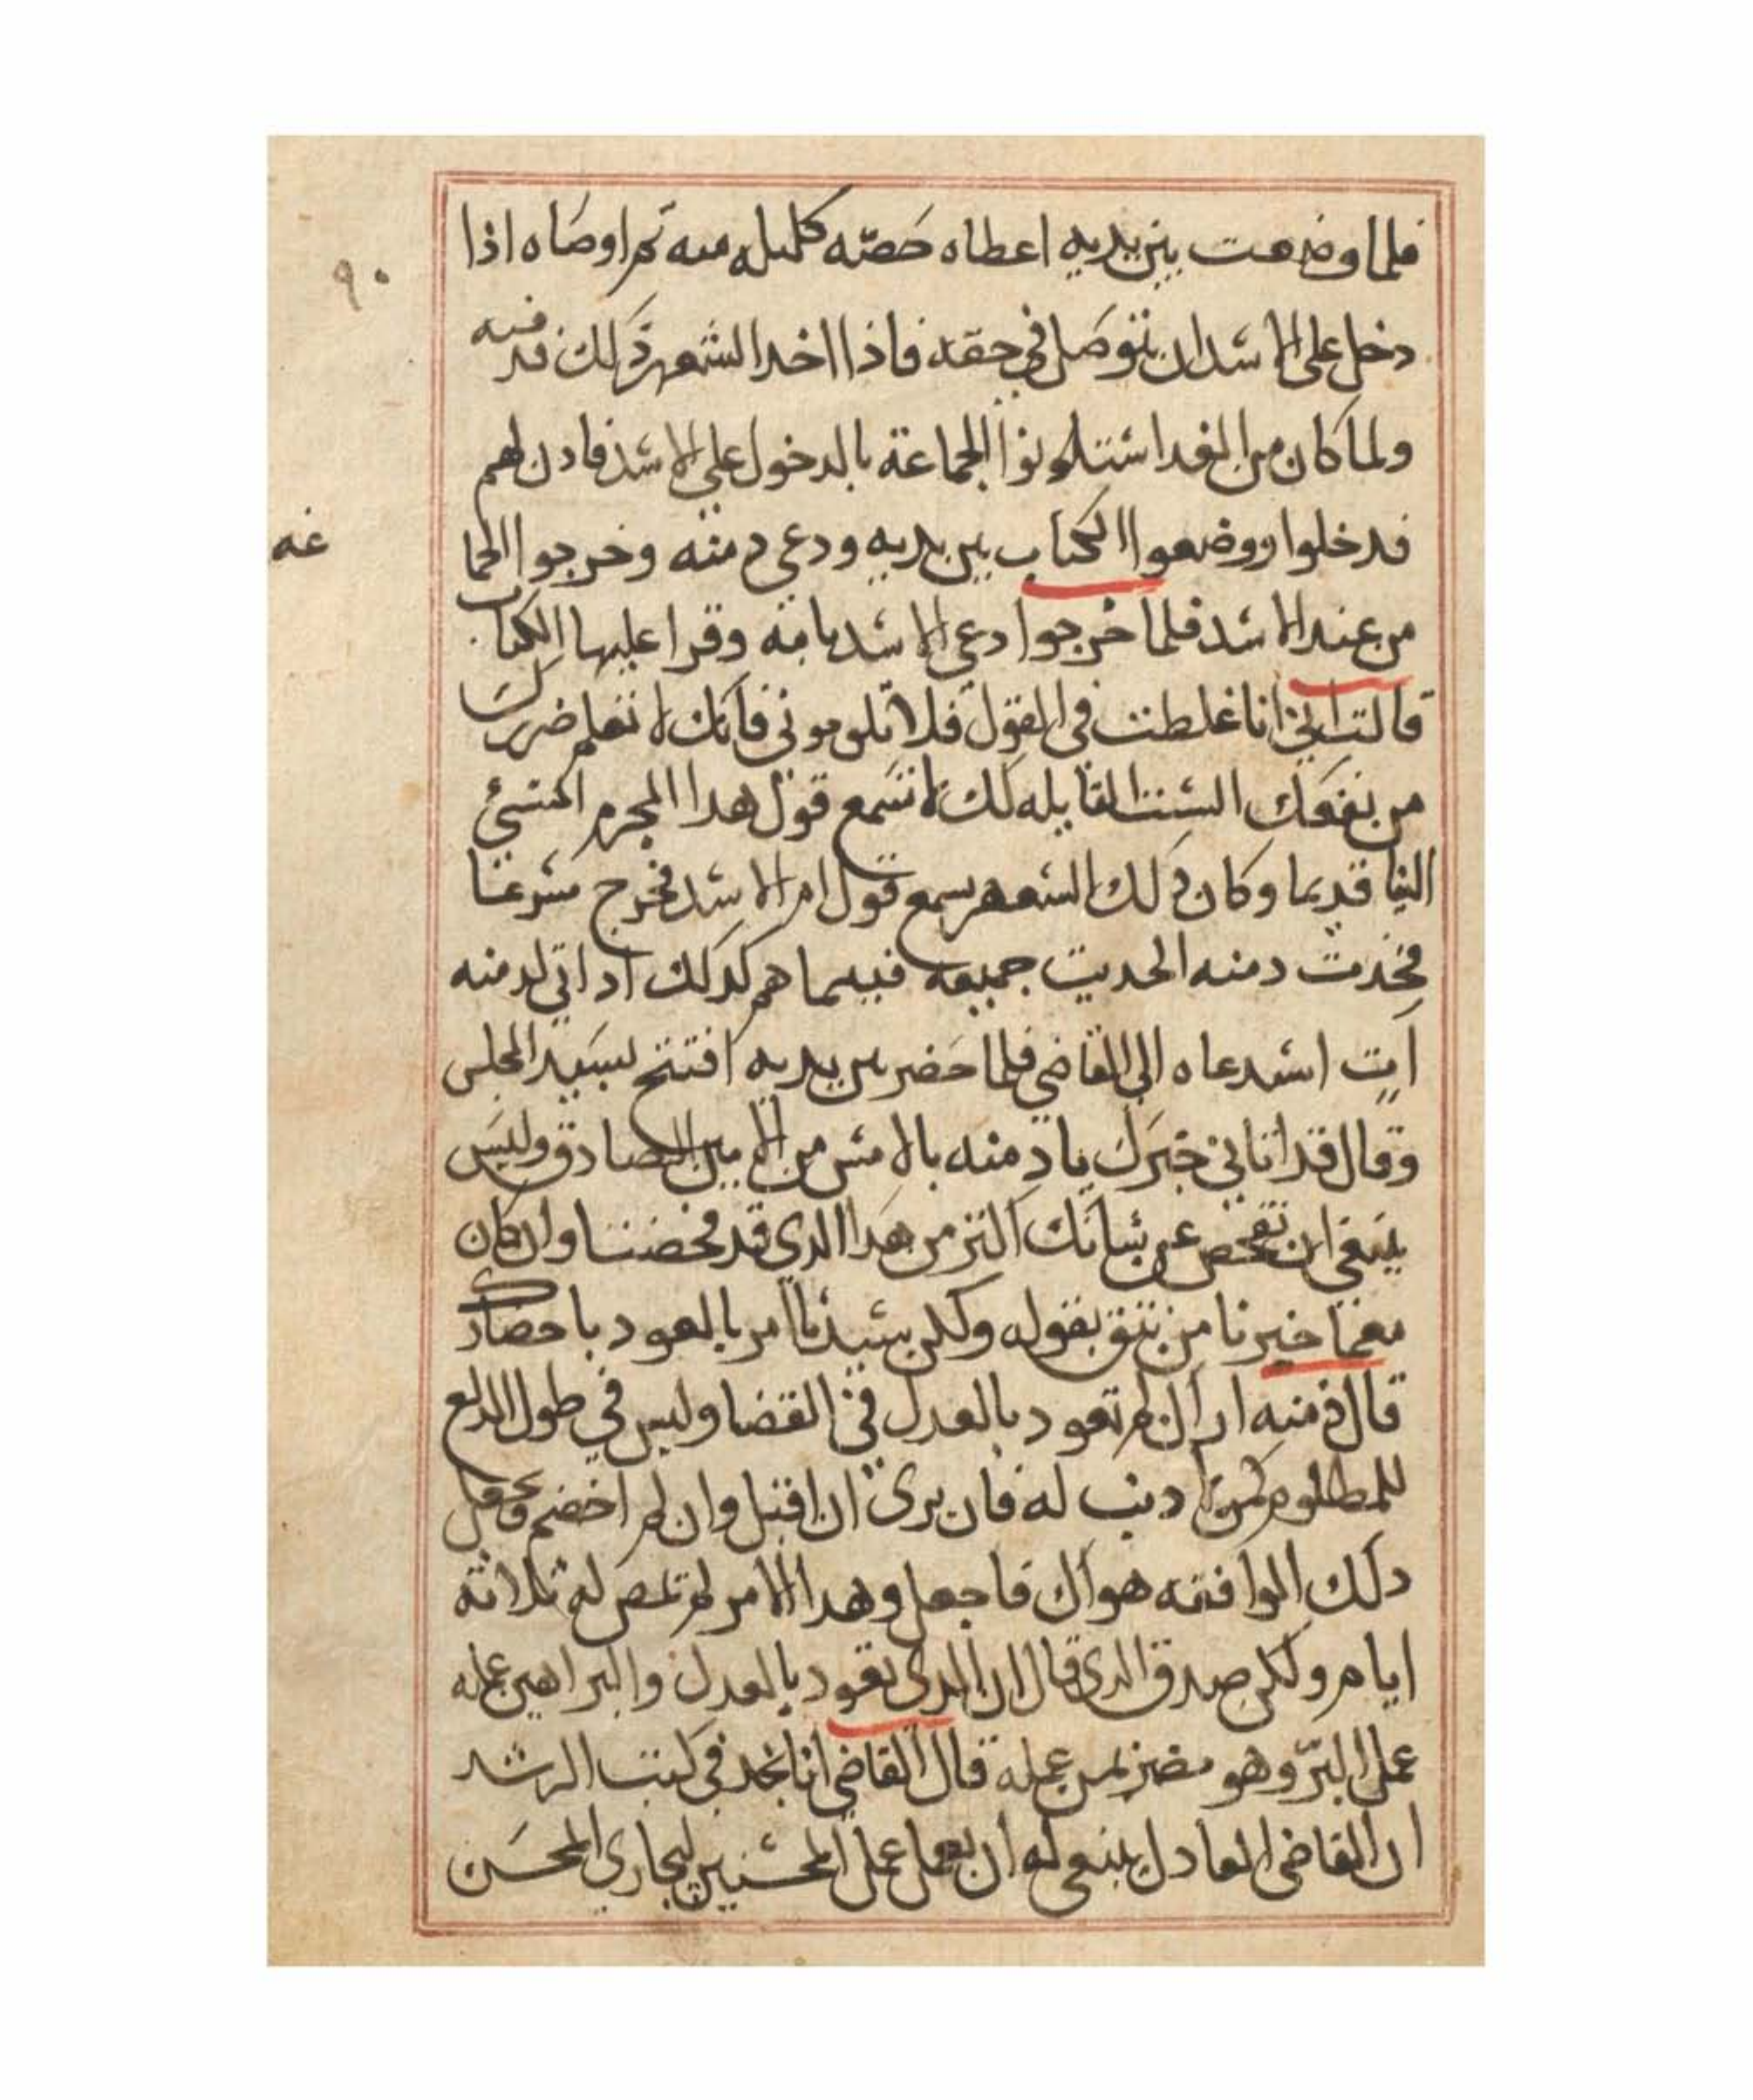 فلما وضعت بين يديه اعطاه حصته كليله منه ثم اوصاه اذا
٩٠
دخل على الاسد ان يتوصل في حقه فاذا اخد الشعهر ذلك فيه
ولما كان من الغد استادنوا الجماعة بالدخول على الاسد فادن لهم
فدخلوا ووضعوا الكتاب بين يديه ودعي دمنه وخرجوا الجما
عه
من عند الاسد فلما خرجوا دعي الاسد بامه وقرا عليها الكتاب
قالت اني انا غلطت في القول فلا تلوموني فانك لا تعلم ضررك
من نفعك الست القايله لك لا تسمع قول هدا المجرم المسيئ
الينا قديما وكان ذلك الشعهر يسمع قول ام الاسد فخرج مسرعا
دمنه الحديت جميعه فبيما هم كدلك اد اتى لدمنه
ات استدعاه الى القاضي فلما حضر بين يديه افتتح سيد المجلس
وقال قد اتاني خبرك يا دمنه بالامس من الامين الصادق وليس
ينبغي ان نفحص عن شانك اكتر من هدا الدي قد فحصنا وان كان
خبرنا من نتق بقوله ولكن سيدنا امر بالعود باحضارك
قال دمنه اراك لم تعود بالعدل في القضا وليس في
للمطلوم دنب له فان يرى ان اقتل وان لم اخصم
دلك الموافقه هواك فاجعل وهدا الامر لم تمض له تلاتة
ايام ولكن صدق الدي قال ان الدي تعود بالعدل والبراهين عمله
عمل البر وهو مضر لمن عمله قال القاضي انا نجد في كتب الرشد
ان القاضي العادل ينبغي له ان يعمل عمل المحسنين ليجازي المحسن